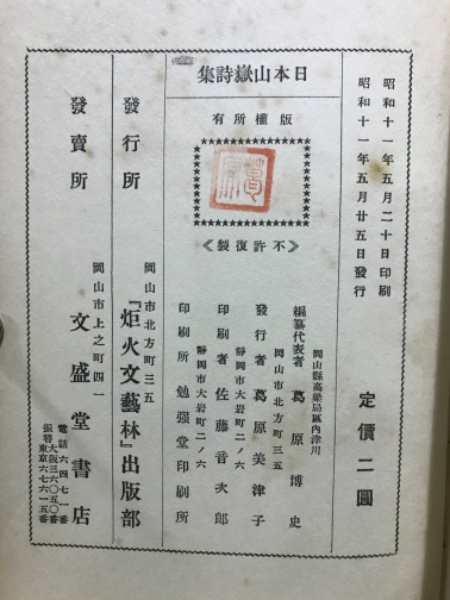 昭和十一年五月二十日印刷
昭和十一年五月廿五日發行
定價二圓
日本山嶽詩集
版權所有
《不許復製》
岡山縣高梁局區內津川
編纂代表者 葛原博史
岡山市北方町三五
發行者 葛原美津子
靜岡市大岩町二ノ六
印刷者 佐藤音次郎
靜岡市大岩町二ノ六
印刷所 勉强堂印刷所
發行所
岡山市北方町三五
『炬火文藝林』出版部
發賣所
岡山市上之町四一
文盛堂書店
電話六四七一番
振替大阪三六〇五〇番
東京六七六一五番